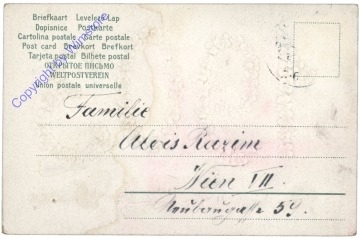 Briefkart Levelező-Lap
Dopisnice Postkarte
Cartolina postale Carte postale
Post card Brevkort Brefkort
Tarjeta postal Bilhete postal
ОТКРЫТОЕ ПИСЬМО
WELTPOSTVEREIN
Union postale universelle
Copyright by
Familie
Alois Razim
Wien VII.
Neubaugasse 59